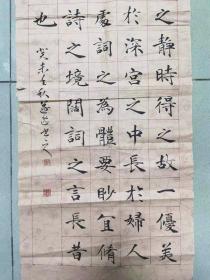 之靜時得之故一優美
於深宮之中長於婦人
處詞之為體要眇宜脩
詩之境闊詞之言長昔
也
癸未